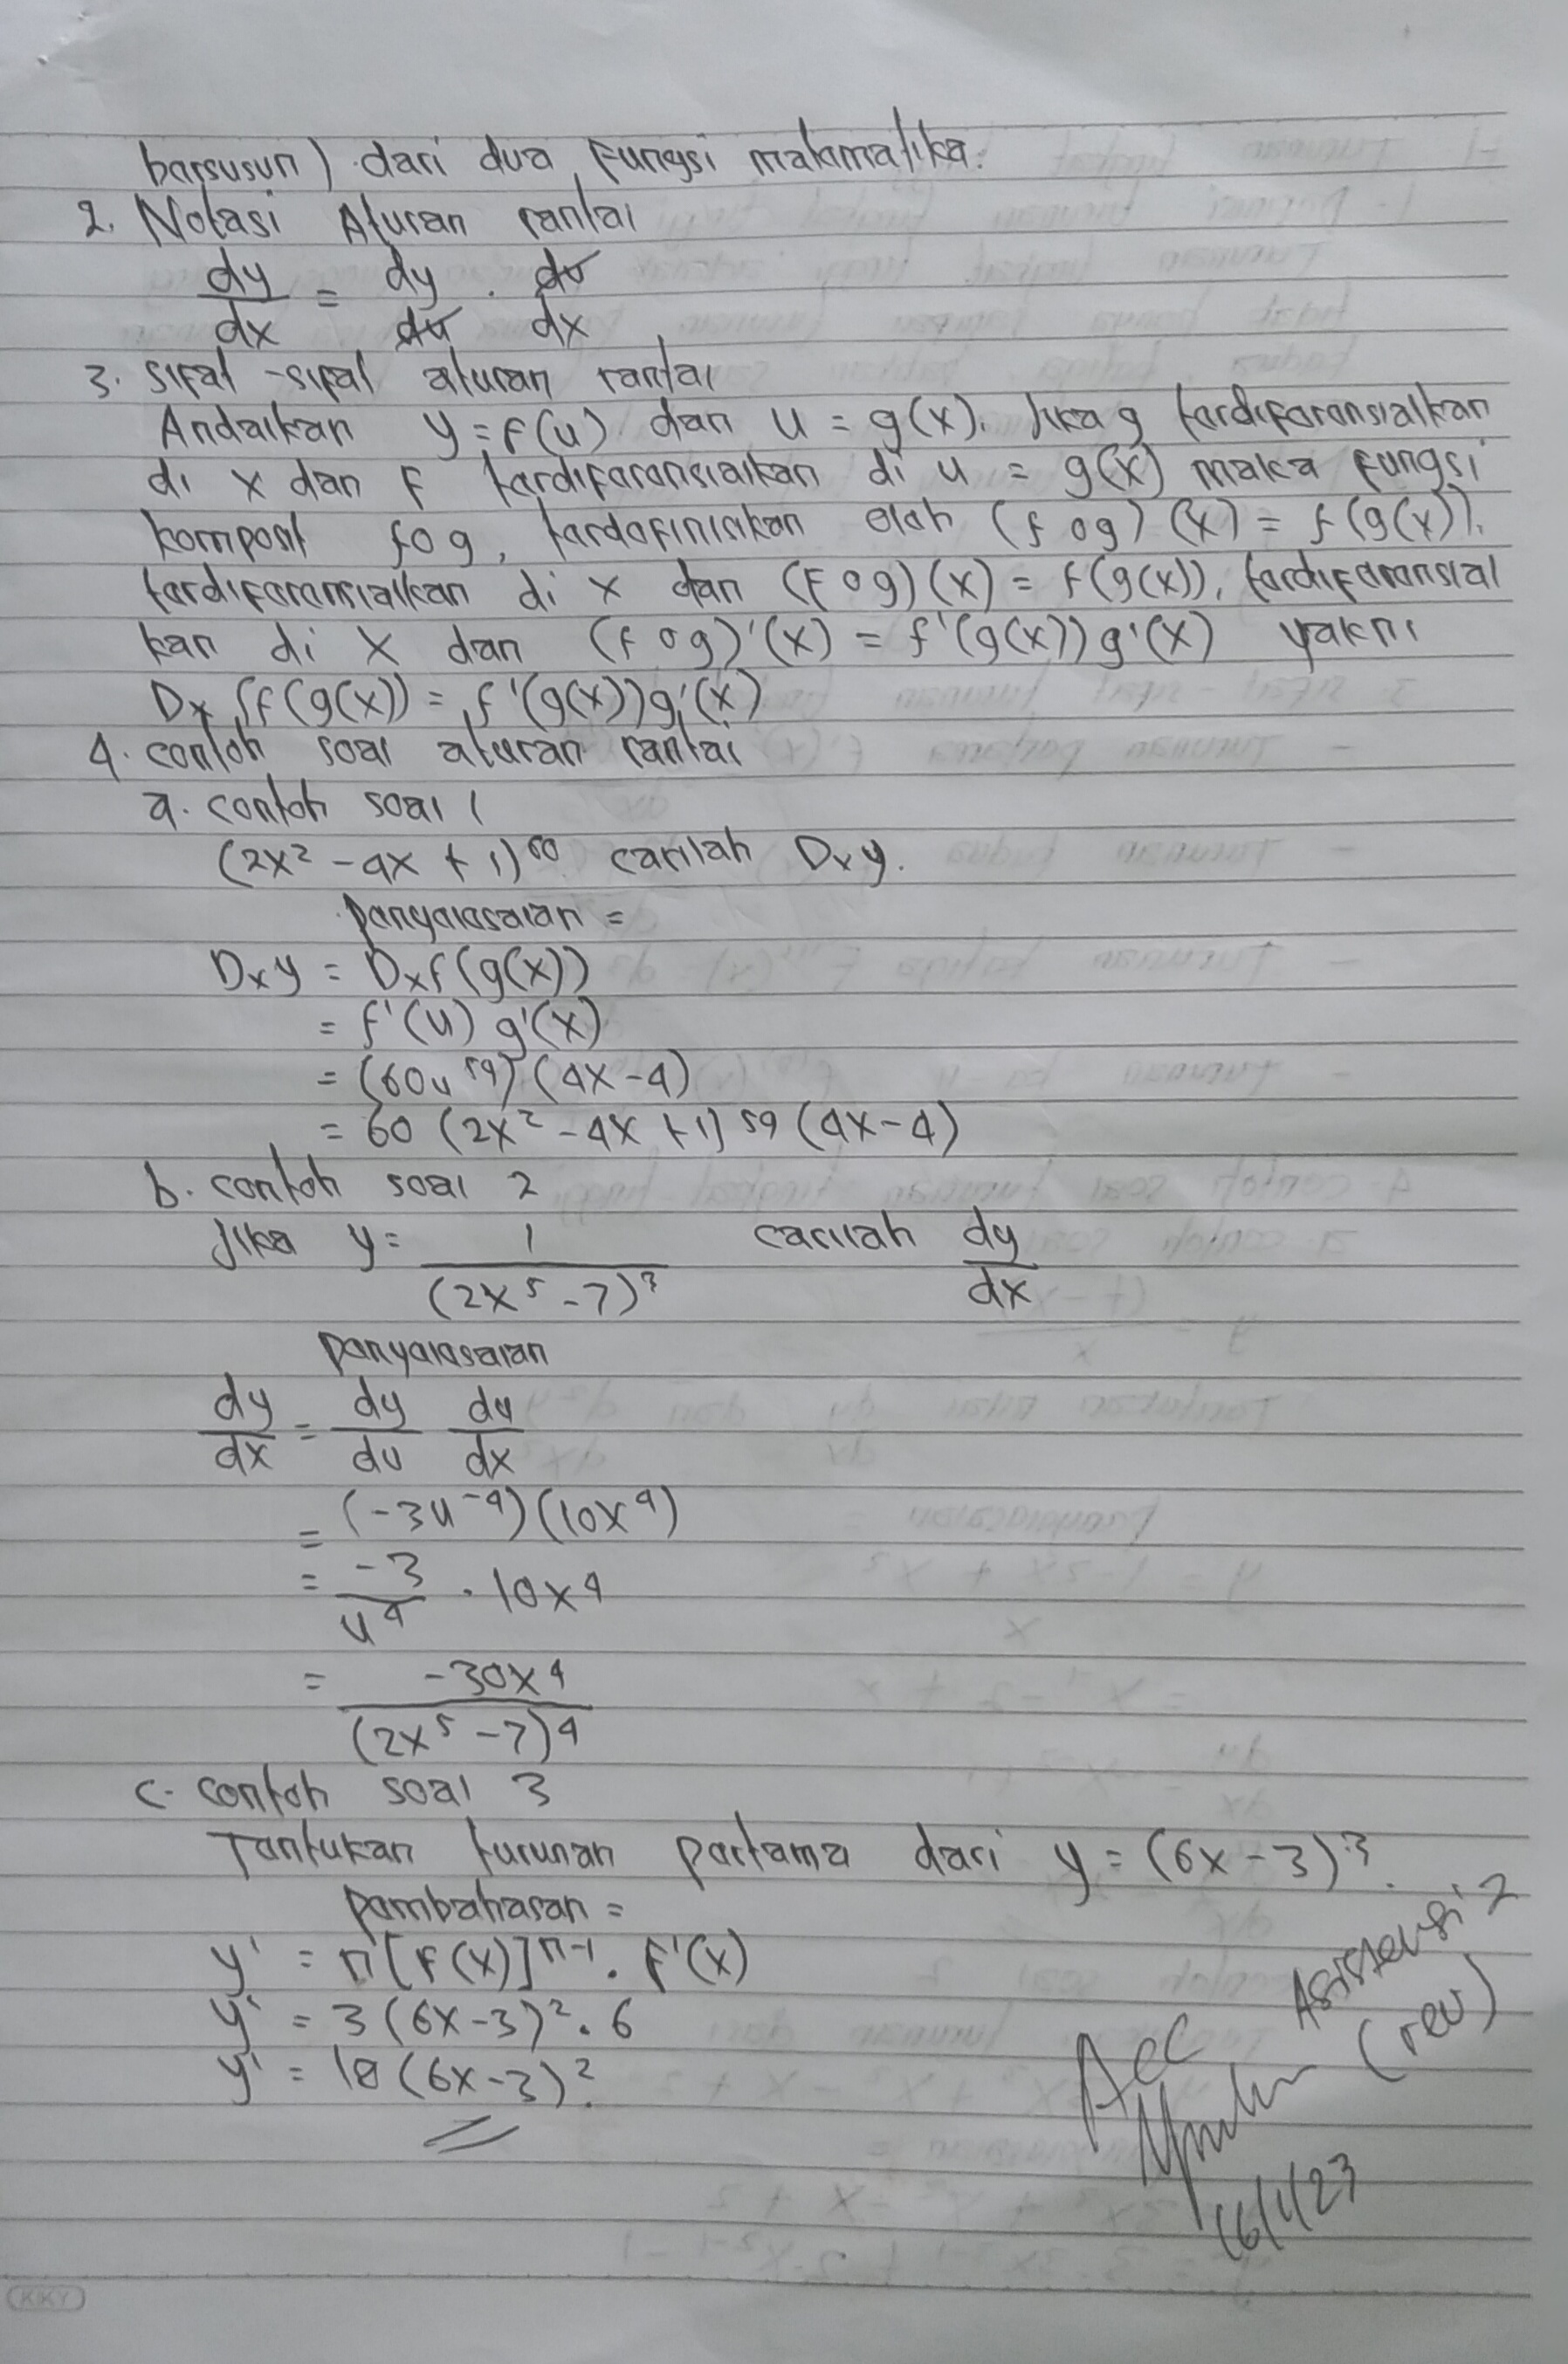 barsusun) dari dua fungsi matematika.
2. Notasi Aturan rantai
dy/dx = dy/du . du/dx
3. Sifat-sifat aturan rantai
Andaikan y = f(u) dan u = g(x). Jika g terdiferensialkan
di x dan f terdiferensialkan di u = g(x) maka fungsi
komposit fog, terdefinisikan oleh (f o g) (x) = f(g(x)),
terdiferensialkan di x dan (f o g)(x) = f(g(x)), terdiferensial
kan di x dan (f o g)'(x) = f'(g(x))g'(x) yakni
Dx f(g(x)) = f'(g(x))g'(x)
4. contoh soal aturan rantai
a. contoh soal 1
(2x² - 4x + 1)⁶⁰ carilah Dxy.
penyelesaian =
Dxy = Dxf(g(x))
= f'(u) g'(x)
= (60u⁵⁹)(4x-4)
= 60 (2x² - 4x + 1)⁵⁹ (4x-4)
b. contoh soal 2
Jika y = 1/(2x⁵ - 7)³ carilah dy/dx
penyelesaian
dy/dx = dy/du du/dx
= (-3u⁻⁴)(10x⁴)
= -3/u⁴ . 10x⁴
= -30x⁴/(2x⁵ - 7)⁴
c. contoh soal 3
Tentukan turunan pertama dari y = (6x - 3)³.
pembahasan =
y' = n[f(x)]ⁿ⁻¹. f'(x)
y' = 3(6x-3)². 6
y' = 18(6x-3)².
Asistensi 2
Acc (rev)
16/1/23
KKY